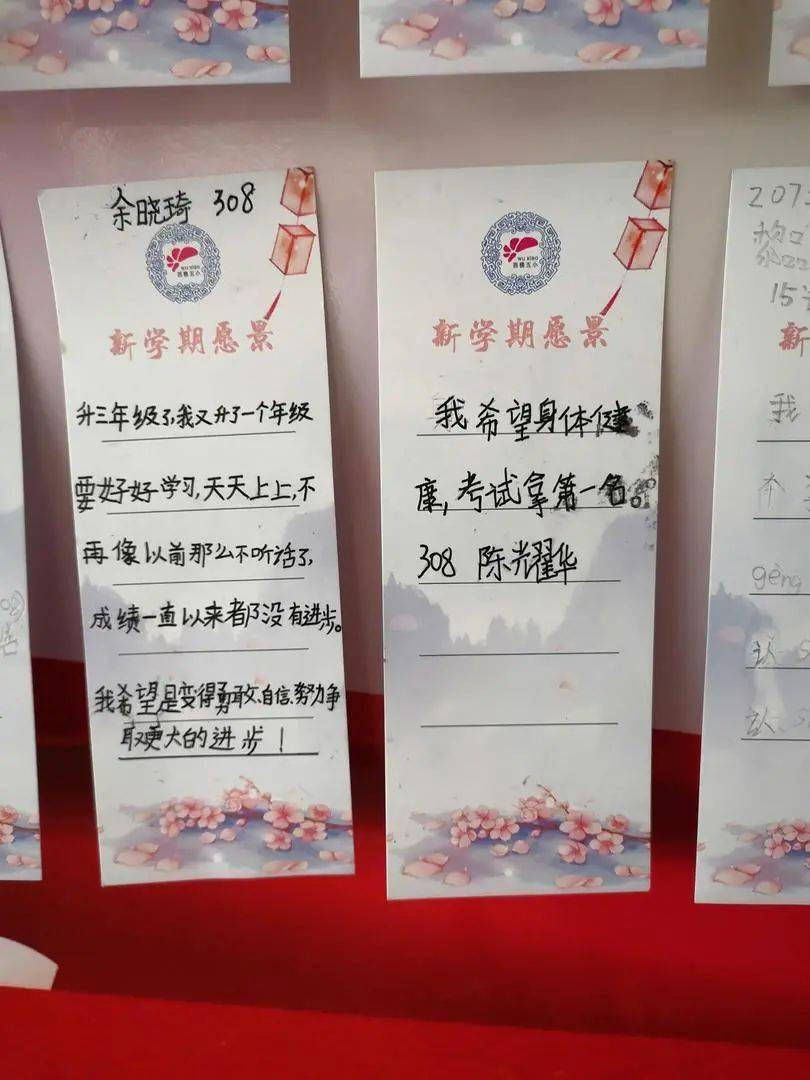 余晓琦 308
WU XIAO
新学期愿景
升三年级了,我又升了一个年级
要好好学习,天天上上,不
再像以前那么不听话了,
成绩一直以来都没有进步。
我希望是变得勇敢、自信、努力争
取更大的进步！
WU XIAO
新学期愿景
我希望身体健
康,考试拿第一名。
308 陈光耀华
207
15
新
我
gèng